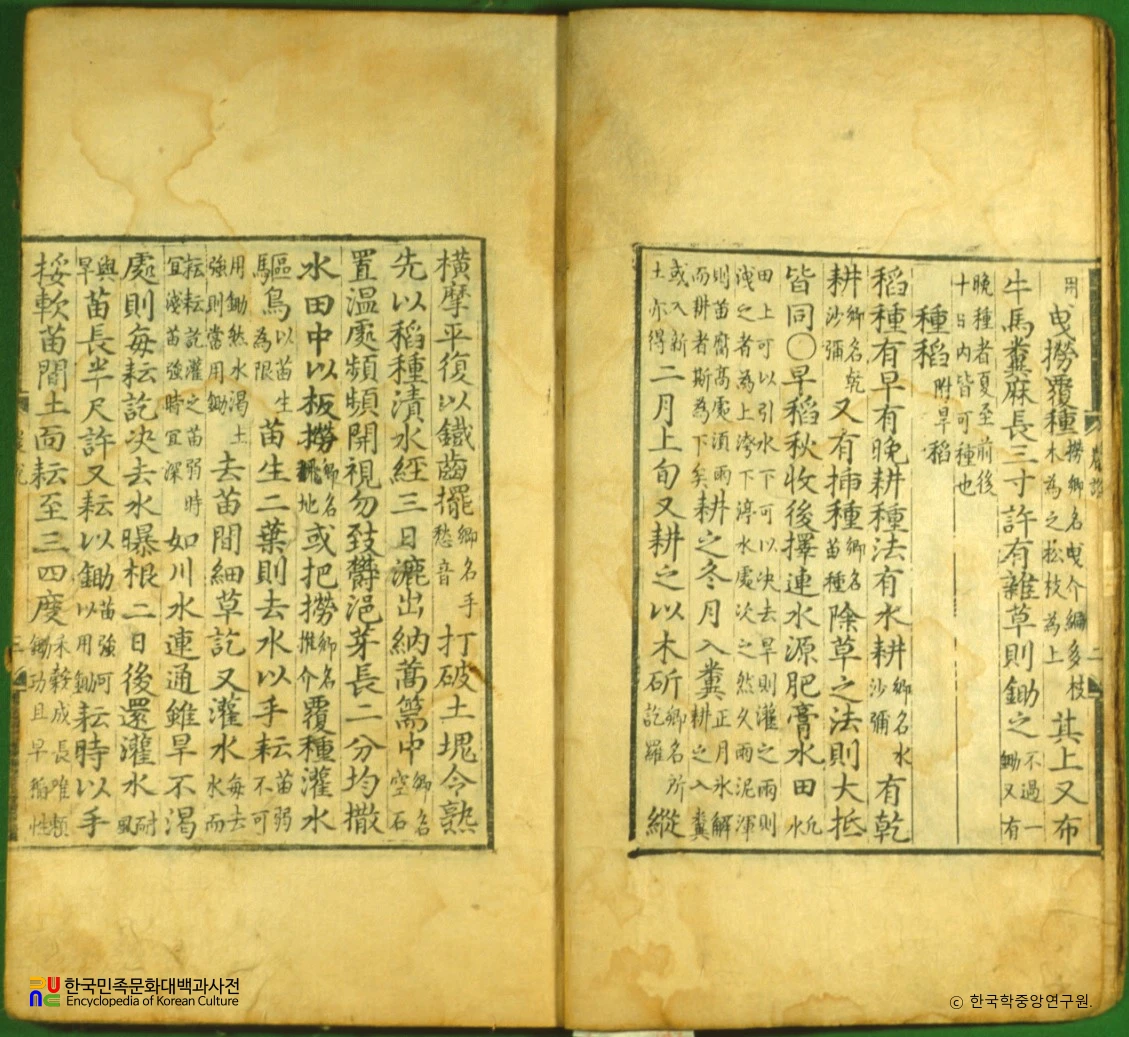 用曳撈覆種撈鄕名曳介綑多枝木為之松枝為上其上又布
牛馬糞麻長三寸許有雜草則鋤之不過一鋤又有
晩種者夏至前後十日内皆可種也
種稻附旱稻
稻種有早有晩耕種法有水耕鄕名水沙彌有乾
耕鄕名乾沙彌又有揷種鄕名苗種除草之法則大抵
皆同○早稻秋收後擇連水源肥膏水田凡水
田上可以引水下可以决去旱則灌之雨則洩之者為上洿下渟水處次之然久雨泥渾
則苗腐高處須雨而耕者斯為下矣耕之冬月入糞正月氷解耕之入糞
或入新土亦得二月上旬又耕之以木斫鄕名所訖羅縱
橫摩平復以鐵齒擺鄕名手愁音打破土塊令熟
先以稻種漬水經三日漉出納蒿篅中鄕名空石
置溫處頻頻開視勿致欝浥芽長二分均撒
水田中以板撈鄕名地或把撈鄕名推介覆種灌水
驅鳥以苗生為限苗生二葉則去水以手耘苗弱不可
用鋤然水渴土強則當用鋤去苗間細草訖又灌水每去水而
耘耘訖灌之苗弱時宜淺苗強時宜深如川水連通雖旱不渴
處則每耘訖决去水曝根二日後還灌水耐風
與旱苗長半尺許又耘以鋤苗強可以用鋤耘時以手
挼軟苗間土面耘至三四度禾穀成長唯頼鋤功且早稻性
한국민족문화대백과사전
Encyclopedia of Korean Culture
© 한국학중앙연구원.